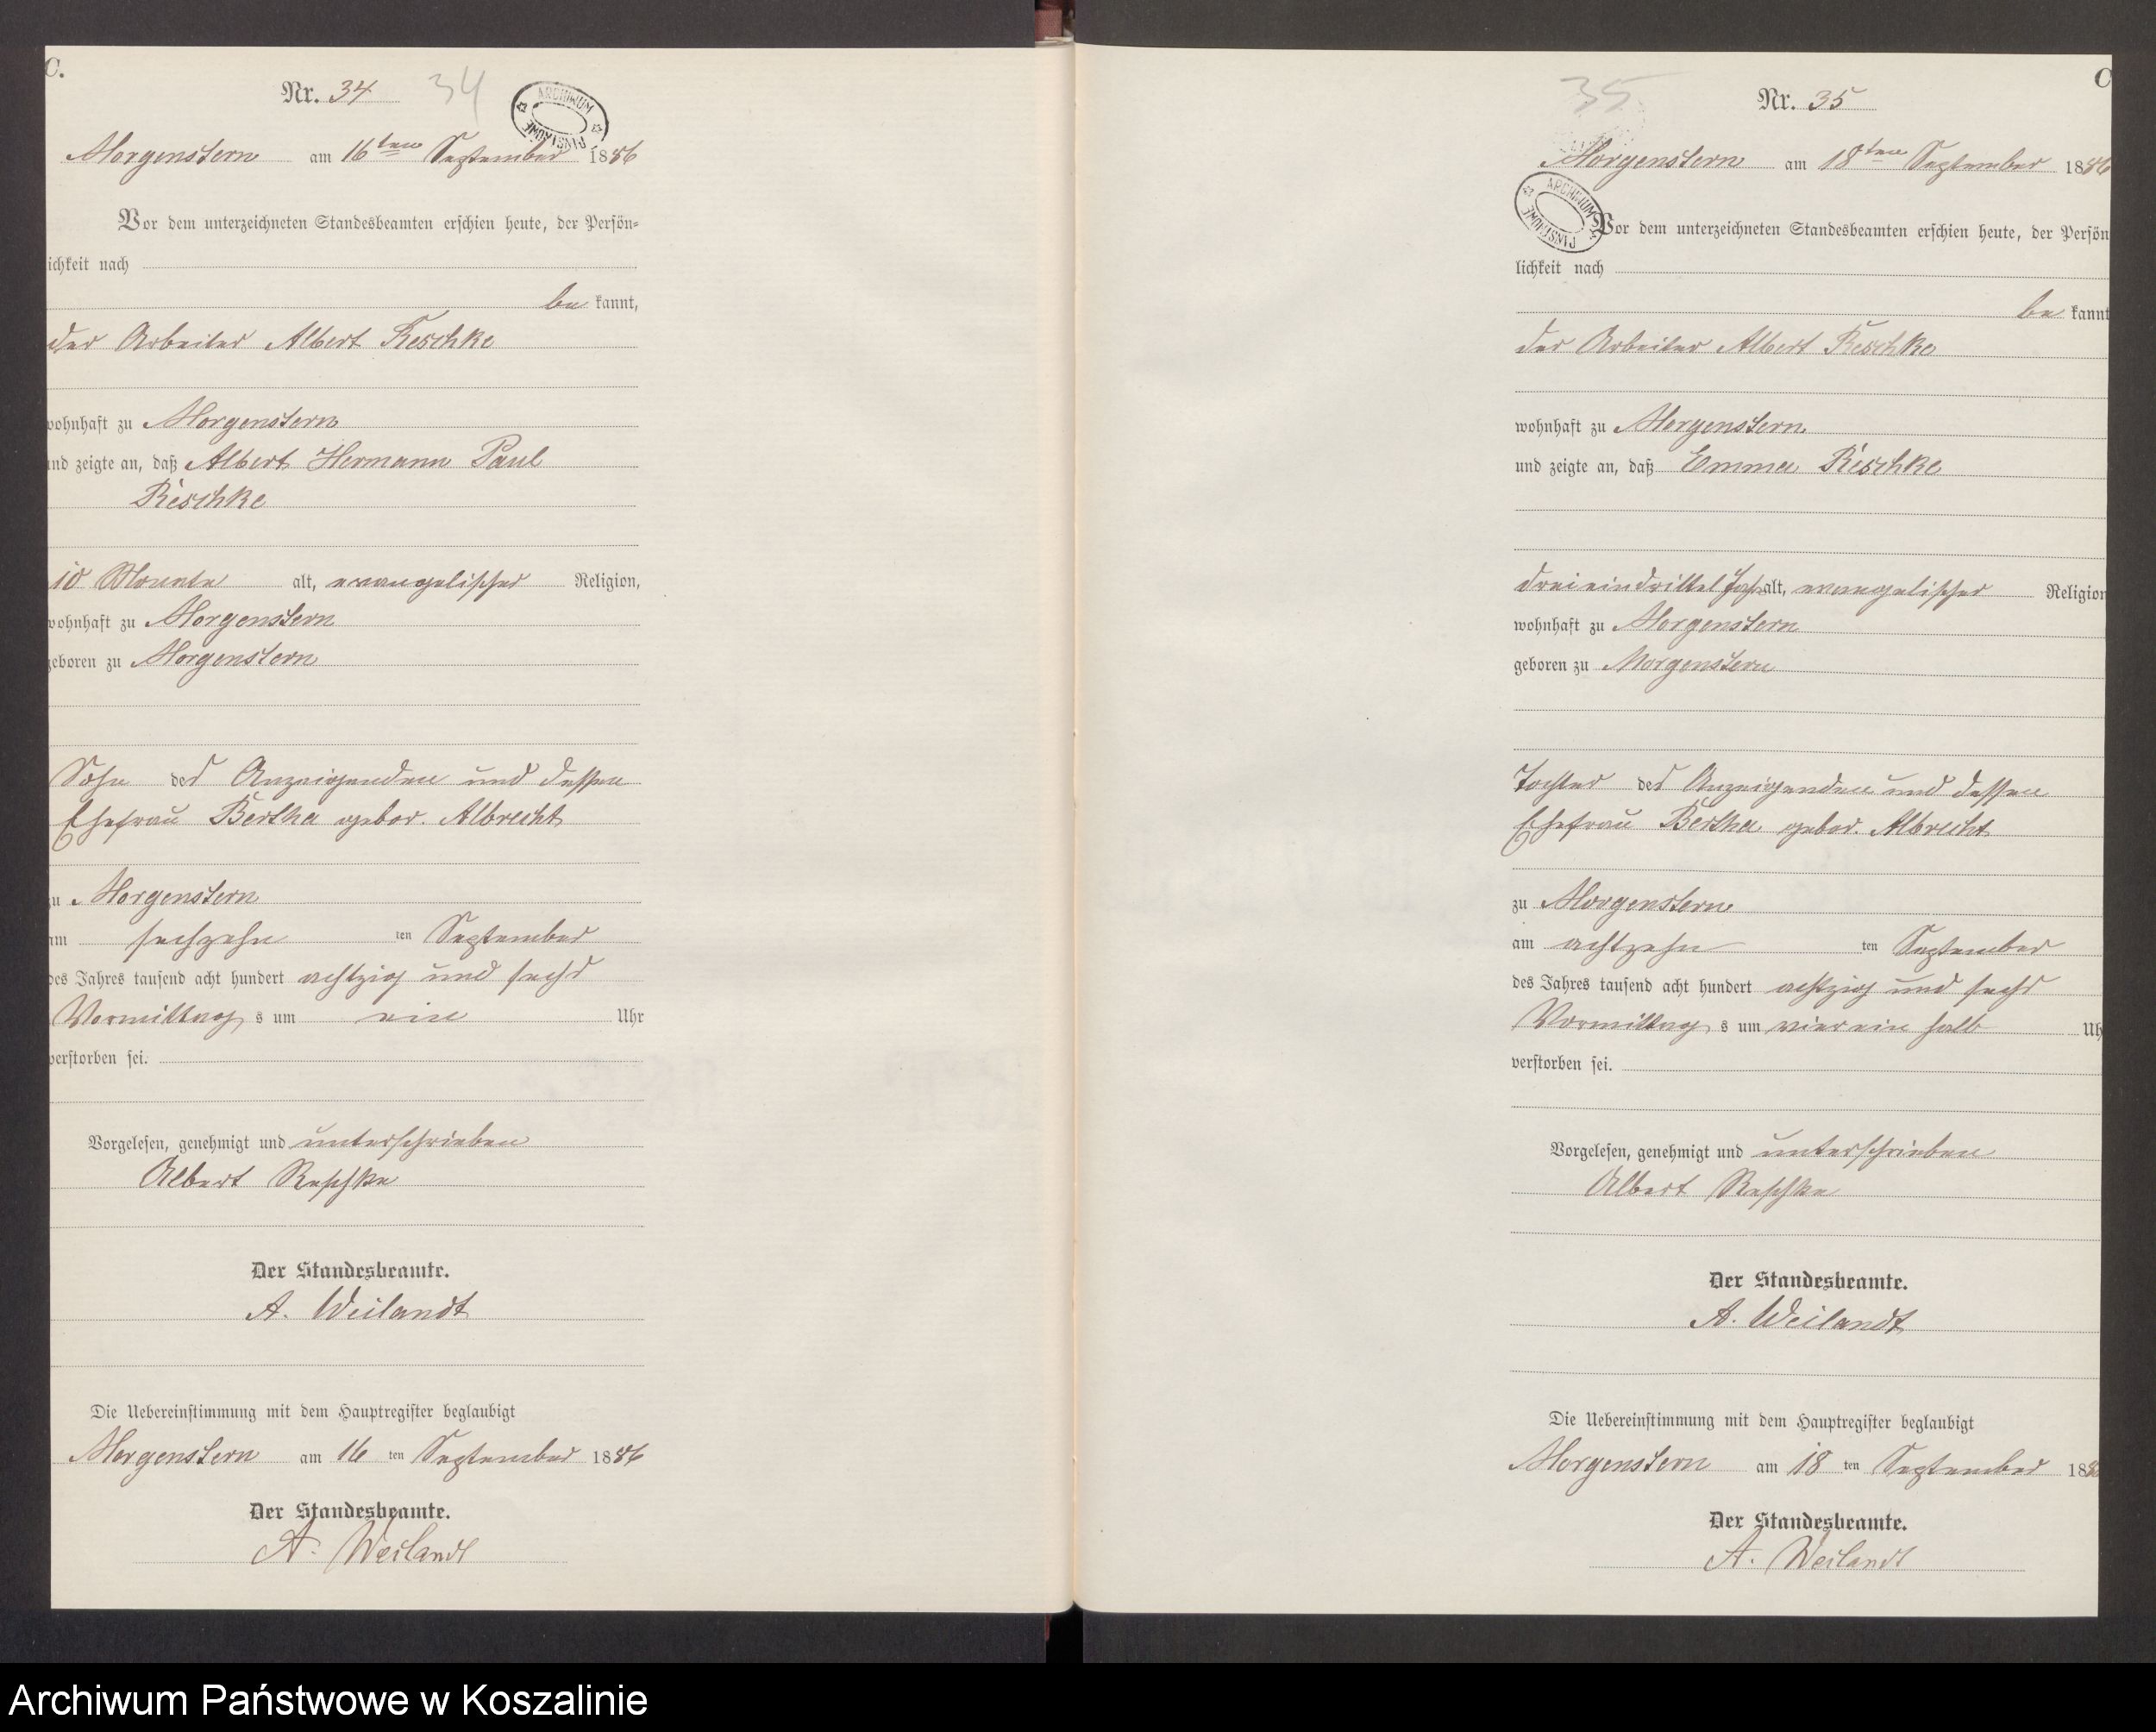 C.
Nr. 34
34
ARCHIWUM PAŃSTWOWE
Morgenstern am 16ten September 1886
Vor dem unterzeichneten Standesbeamten erschien heute, der Persön-
lichkeit nach
be kannt,
der Arbeiter Albert Reschke
wohnhaft zu Morgenstern
und zeigte an, daß Albert Hermann Paul
Reschke
10 Monate alt, evangelischer Religion,
wohnhaft zu Morgenstern
geboren zu Morgenstern
Sohn des Anzeigenden und dessen
Ehefrau Bertha gebor. Albrecht
zu Morgenstern
am sechzehn ten September
des Jahres tausend acht hundert achtzig und sechs
Vormittag s um ein Uhr
verstorben sei.
Vorgelesen, genehmigt und unterschrieben
Albert Reschke
Der Standesbeamte.
A. Weilandt
Die Uebereinstimmung mit dem Hauptregister beglaubigt
Morgenstern am 16 ten September 1886
Der Standesbeamte.
A. Weilandt
C
35
Nr. 35
Morgenstern am 18ten September 1886
ARCHIWUM PAŃSTWOWE
Vor dem unterzeichneten Standesbeamten erschien heute, der Persön
lichkeit nach
be kannt
der Arbeiter Albert Reschke
wohnhaft zu Morgenstern
und zeigte an, daß Emma Reschke
dreieindrittel Jahr alt, evangelischer Religion
wohnhaft zu Morgenstern
geboren zu Morgenstern
Tochter des Anzeigenden und dessen
Ehefrau Bertha gebor. Albrecht
zu Morgenstern
am achtzehn ten September
des Jahres tausend acht hundert achtzig und sechs
Vormittag s um vier ein halb Uh
verstorben sei.
Vorgelesen, genehmigt und unterschrieben
Albert Reschke
Der Standesbeamte.
A. Weilandt
Die Uebereinstimmung mit dem Hauptregister beglaubigt
Morgenstern am 18 ten September 188
Der Standesbeamte.
A. Weilandt
Archiwum Państwowe w Koszalinie